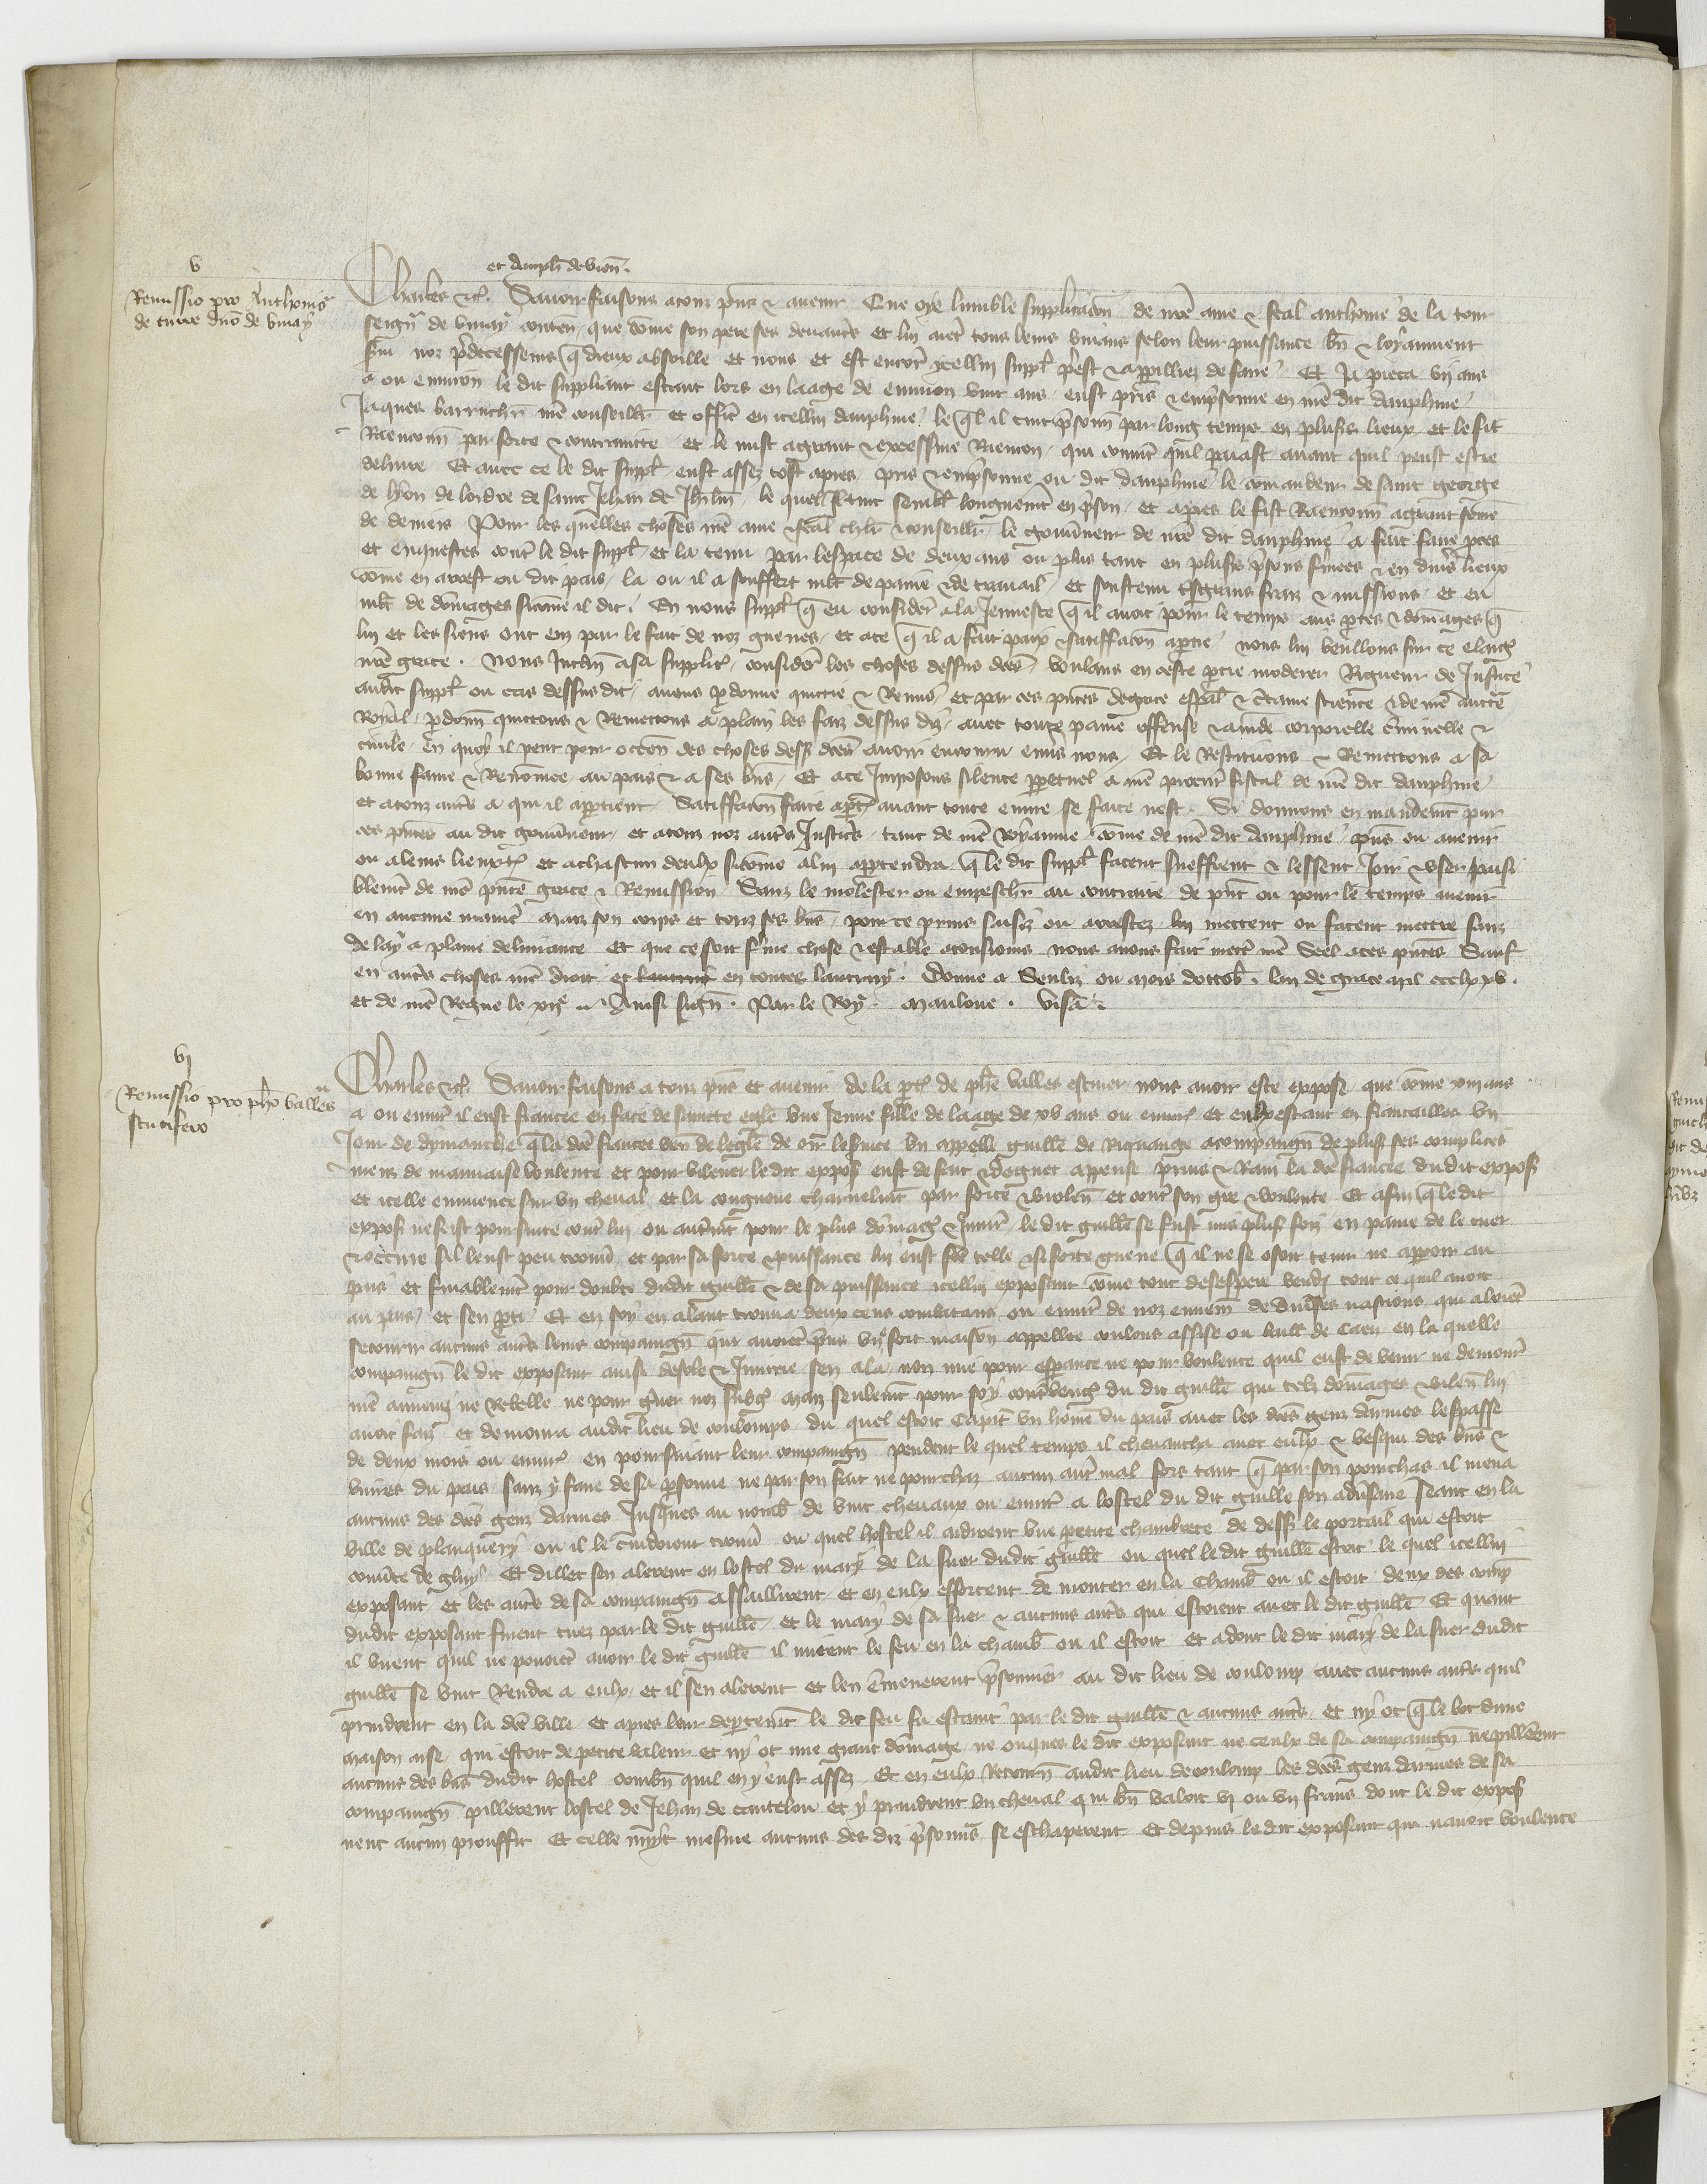 v
Remissio pro Anthonio
de turre dno de vinay
et dauph de vien.
Charles &c. Savoir faisons a touz pns & avenir Que oye lumble supplicacon de nre ame & feal anthoine de la tour
seignr de vinay conten que come son pere ses devancrs et lui aient tous temps vivans selon leur puissance bn & loyaument
servi noz predecesseurs q dieux absoille et nous et est encor icellui suppl prest & appillez de faire Et Ja pieca vij ans
a ou environ le dit suppliant estant lors en laage de environ vint ans eust pris & emprisonne en nre dit dauphine
Jaques nre conseillr et officr en icellui dauphine le ql il tint prisonn par long temps en plusrs lieux et le fit
Raenconn par force & contrainte et le mist a grant & excessive Raencon qui convint quil paiast avant quil peust estre
delivre Et avec ce le dit suppl eust assez tost apres pris & emprisonne ou dit dauphine le comandeur de saint george
de lyon de lordre de saint Jehan de Jhrlm le quel il tint sembl longuemt en prison et apres le fist Raenconn a grant some
de deniers Pour les quelles choses nre ame & feal chlr & conseillr le gouvneur de nre dit dauphine a fait faire pces
et enquestes contr le dit suppl et la tenu par lespace de deux ans ou plus tant en plusrs prisons fermees & en divrs lieux
come en arrest ou dit pais la ou il a souffert mlt de paine & de travail et soustenu tsgrans fraiz & missions et eu
mlt de domages sicome il dit En nous suppl q eu consider a la Jeunesce q il avoit pour le temps aus ptes & domages q
lui et les siens ont eu par le fait de noz guerres et a ce q il a fait paix & satisfacon a ptie nous lui veullons sur ce eslargir
nre grace. Nous Inclin a sa supplic considr les choses dessus des voulans en ceste ptie moderer Rigueur de Justice
audit suppl ou cas dessus dit avons pdonne quictie & Remis et par ces pntes de grace espal & ctaine science & de nre auctte
Royal pdonn quictons & Remettons a plain les faiz dessus diz avec toute paine offense & amde corporelle criminelle &
civile en quoy il peut pour occon des choses dess des avoir encouru envs nous Et le Restituons & Remettons a sa
bonne fame & Renomee au pais & a ses bns Et a ce Imposons silence perpetuel a nre procur fiscal de nre dit dauphine
et a touz autrs a qui il appartient Satisfacon faite a pte avant toute euvre se faite nest. Si donnons en mandemt par
ces pntes au dit gouvneur et a touz noz autrs Justicrs tant de nre royaume come de nre dit dauphine pns ou avenir
ou a leurs lieuxten et a chascun deulx sicome a lui appartendra q le dit suppl facent sueffrent & lessent Joir & user paisi
blemt de nre pnte grace & Remission Sanz le molester ou empeschr au contraire de pnt ou pour le temps avenir
en aucune maniere Maiz son corps et touz ses bns pour ce prins saisiz ou arrestez lui mettent ou facent mettre sanz
delay a plaine delivrance Et que ce soit ferme chose & estable a tousiours nous avons fait mettr nre Seel a ces pntes Sauf
en autrs choses nre droit et en toutes lautruy. Donne a Senliz ou mois doctob. lan de grace mil ccclxxv.
et de nre Regne le xije Ainsi sign. Par le Roy. Mauloue. Visa.
vj
Remissio pro pho valles
scutifero
Charles &c. Savoir faisons a touz pns et avenir de la pte de phe valles escuier nous avoir este expose que come xvij ans
a ou envir il eust fiancee en face de saincte egle une Jeune fille de laage de xv ans ou envir et eulx estans en fiancailles un
Jour de dymanche q la dce fiancee ven de legle de oir le service un appelle guille de acompaign de plusrs ses complices
menz de mauvaise voulente et pour vilener le dit expos eust de fait & daguet appense prins & Ravi la dce fiancee dudit expos
et icelle emmenee sur un cheval et la congneue charnelmt par force & violen et contr son gre & voulente Et afin q le dit
expos ne feist poursuite contr lui ou autremt pour le plus domag & Iniurr le dit guille se fust mis plusrs foiz en paine de le tuer
& occire sil leust peu trouvr et par sa force & puissance lui eust fte telle & si forte guerre q il ne se osoit tenir ne apparoir au
pais et finablemt pour doubte dudit guille & de sa puissance icellui exposant come tout desespere vendi tout ce quil avoit
au pais et sen pti Et en soy en alant trouva deux cens combatans ou envir de noz ennemis de divrses nascions qui aloient
secourir aucuns autrs leurs compaign qui avoient prins une fort maison appellee coulons assise ou baill de Caen en la quelle
compaign le dit exposant ainsi desole & Iniurie sen ala non mie pour esperance ne pour voulente quil eust de venir ne demourr
nre ennemi ne Rebelle ne pour grver noz subgz Maiz seulemt pour soy contrvenger du dit guille qui telz domages & vilen lui
avoit faiz et demoura audit lieu de coulomps du quel estoit Capit un home du pais avec les dces genz darmes lespasse
de deux mois ou envir en poursuiant leur compaign pendent le quel temps il chevaucha avec eulx & vesqui des bns &
vivres du pais sanz y faire de sa psonne ne par son fait ne pourchaz aucun autre mal fors tant q par son pourchas il mena
aucuns des dces genz darmes Jusques au nomb de vint chevaux ou envir a lostel du dit guille son advrsaire seant en la
ville de planquery ou il le cuidoient trouvr ou quel hostel il ardirent une petite chambrete de dess le portail qui estoit
couvrte de gluy Et dillec sen alerent en lostel du mary de la suer dudit guille ou quel le dit guille estoit le quel icellui
exposant et les autrs de sa compaign assaillirent et en eulx efforcent de monter en la Chamb ou il estoit deux des comp
dudit exposant furent tuez par le dit guille et le mary de sa suer & aucuns autrs qui estoient avec le dit guille Et quant
il virent quil ne povoient avoir le dit guille il mirent le feu en la chamb ou il estoit et adont le dit mary de la suer dudit
guille se vint Rendre a eulx et il sen alerent et len emmenerent prisonnier au dit lieu de coulomp avec aucuns autrs quil
prindrent en la dce ville et apres leur departemt le dit feu fu estaint par le dit guille & aucuns autrs et ny ot q le bot dune
maison arse qui estoit de petite valeur et ny ot mie grant domage ne onques le dit exposant ne ceulx de sa compaign ne pillerent
aucuns des bns dudit hostel combn quil en y eust assez Et en eulx Retourn audit lieu de coulomp les dces genz darmes de sa
compaign pillerent lostel de Jehan de cantelou et y prindrent un cheval qui bn valoit vj ou vij frans dont le dit expos
nent aucun prouffit Et celle nuyt mesme aucuns des diz prisonns se eschaperent Et depuis le dit exposant qui navoit voulente